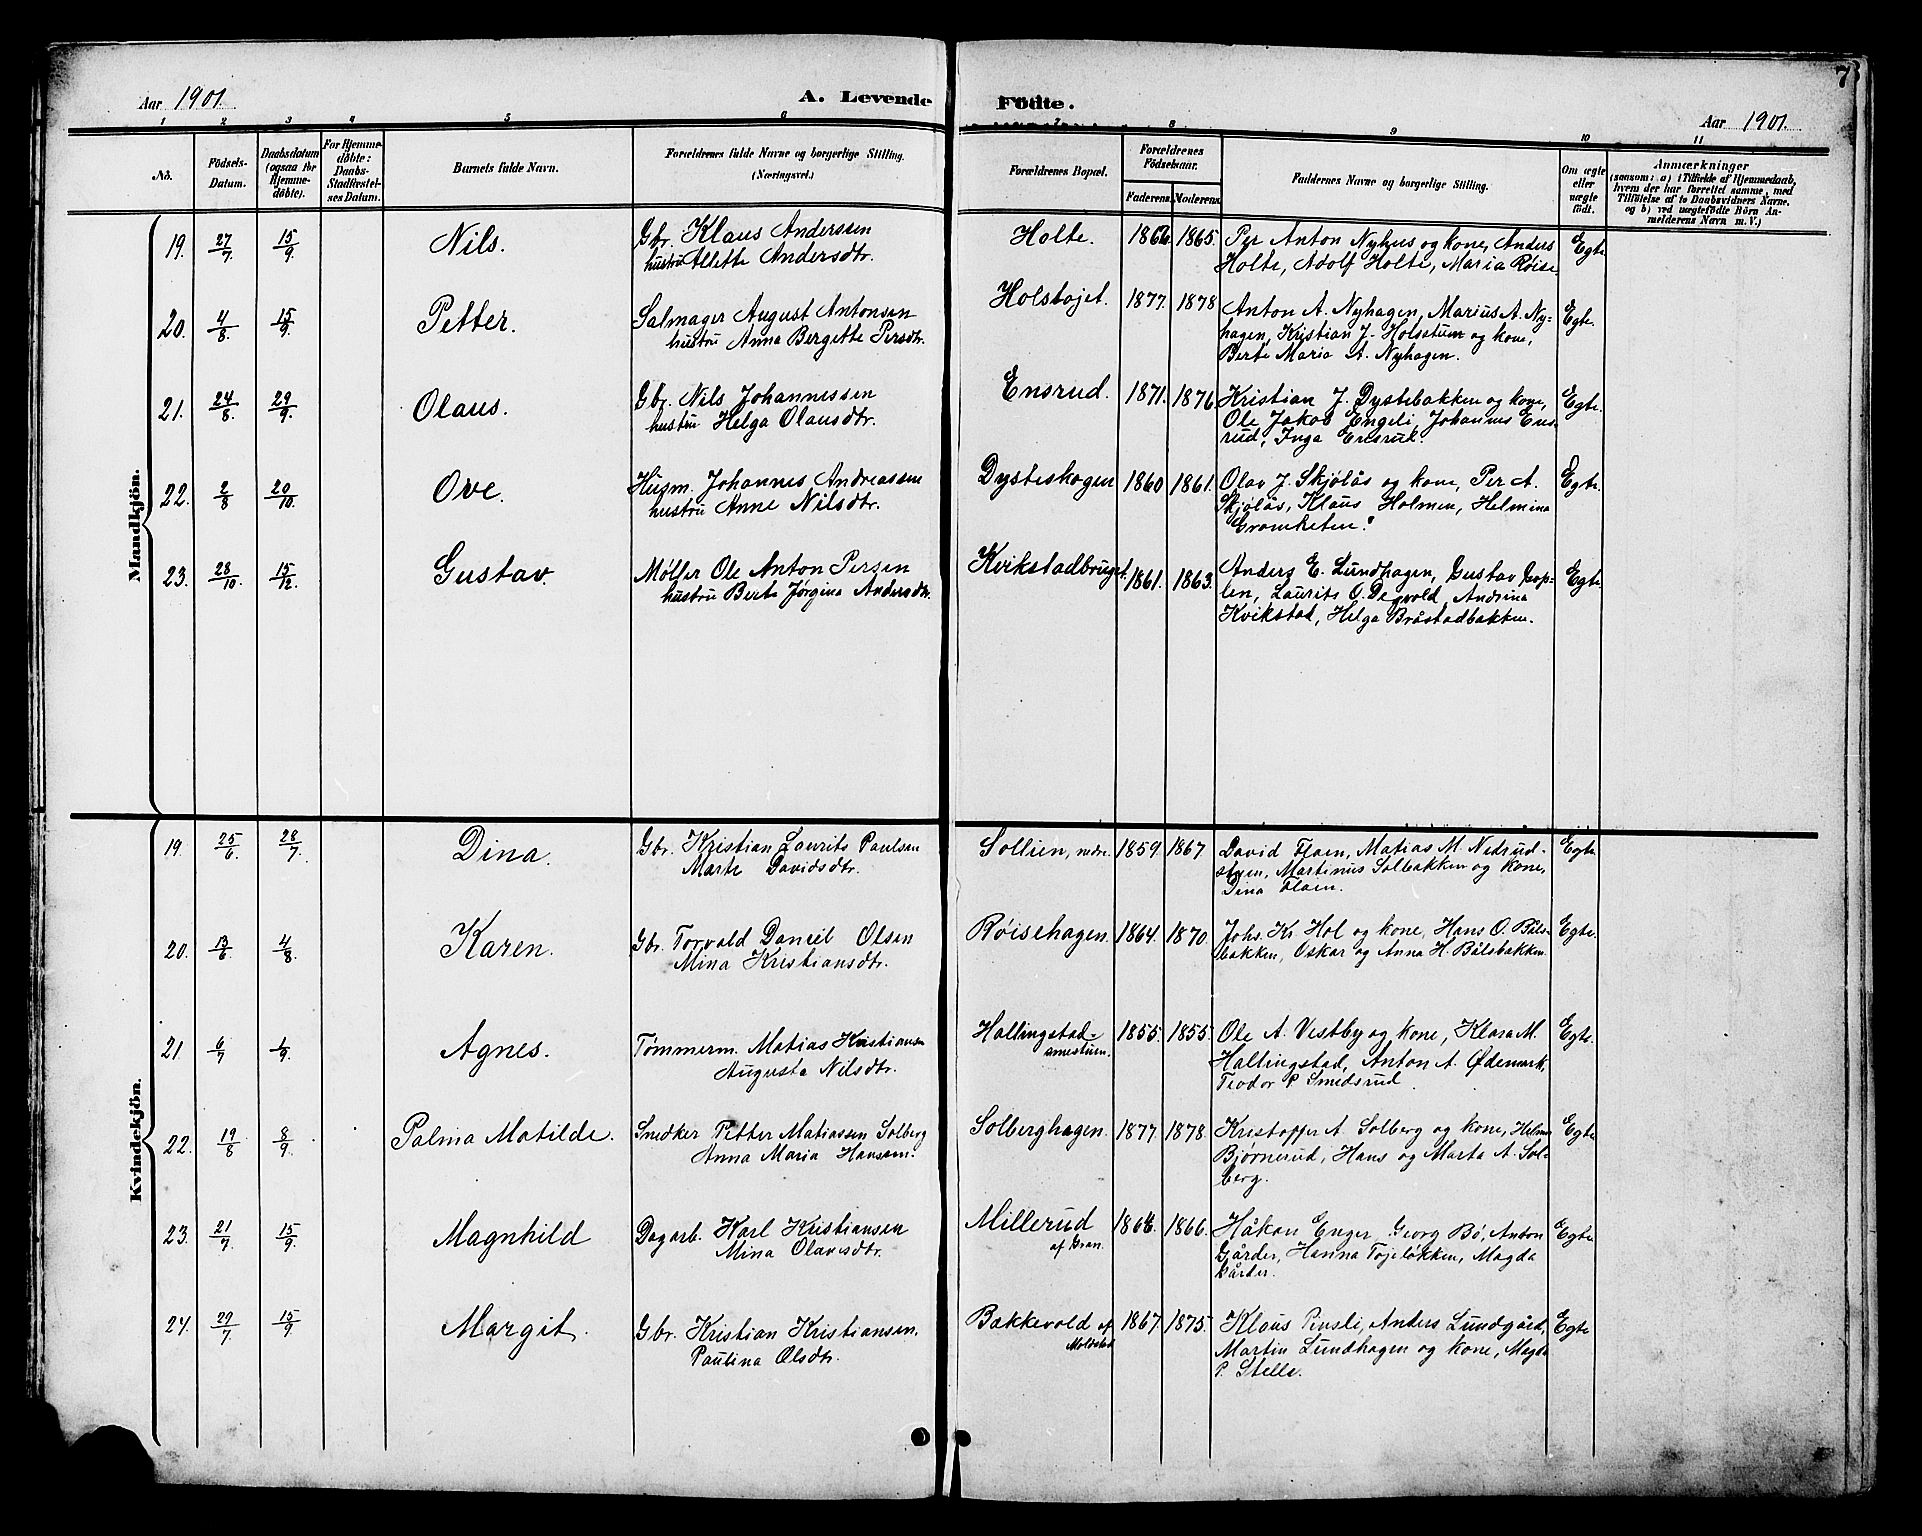 7
Aar 1901.
A. Levende Födte.
Aar 1901.
1 2 3 4 5 6 7 8 9 10 11
No.
Födsels-
Datum.
Daabsdatum
(ogsaa for
Hjemme-
döbte).
For Hjemme-
döbte:
Daabs-
Stadfæstel-
ses Datum.
Barnets fulde Navn.
Forældrenes fulde Navne og borgerlige Stilling.
(Næringsvei.)
Forældrenes Bopæl.
Forældrenes
Födselsaar.
Faderens. Moderens.
Faddernes Navne og borgerlige Stilling.
Om ægte
eller
uægte
födt.
Anmærkninger
(saasom: a) i Tilfælde af Hjemmedaab,
hvem der har forrettet samme, med
Tilföielse af to Daabsvidners Navne.
og b) ved uægtefödte Börn An-
melderens Navn m. V.)
Mandkjön.
19. 27/7 15/9 Nils. Gbr. Klaus Anderssen Holte. 1866. 1865. Per Anton Nyhus og kone, Anders Egte
hustru Allette Andersdtr. Holte, Adolf Holte, Maria Røise
20. 4/8 15/9 Petter. Salmager August Antonsen Holstøjet. 1877. 1878 Anton A. Nyhagen, Marius A. Ny= Egte.
hustru Anna Bergette Persdtr. hagen, Kristian J. Holsstuen og kone,
Berte Maria A. Nyhagen.
21. 24/8 29/9 Olaus. Gbr. Nils Johannessen Ensrud. 1871. 1876. Kristian J. Dystebakken og kone, Egte.
hustru Helga Olausdtr. Ole Jakob Engeli, Johannes Ens-
rud, Inga Ensrud.
22. 2/8 20/10 Ove. Husm. Johannes Andreassen Dysteshagen 1860 1861. Olav J. Skjølås og kone, Per A. Egte.
hustru Anne Nilsdtr. Skjølås, Klaus Holmen, Helmina
23. 28/10 15/12 Gustav. Møller Ole Anton Persen Kvikstadbruget. 1861. 1863. Anders E. Lundhagen, Gustav Egte.
hustru Berte Jørgina Andersdtr. Laurits O. Degvold, Andrina
Kvikstad, Helga Bråstadbakken.
Kvindekjön.
19. 25/6 28/7 Dina. Gbr. Kristian Laurits Paulsen Sollien, nedre. 1859. 1867 David Flaen, Matias M. Nedrud- Egte
Marte Davidsdtr. stuen, Martinus Solbakken og kone,
Dina Flaen.
20. 13/6 4/8 Karen. Gbr. Torvald Daniel Olsen Røisehagen. 1864. 1870. Johs. Kr. Hol og kone, Hans O. Båls- Egte.
Mina Kristiansdtr. bakken, Oskar og Anna H. Bålsbakken.
21. 6/7 1/9 Agnes. Tømmerm. Matias Kristiansen Hallingstad- 1855. 1855. Ole A. Vestby og kone, Klara M. Egte.
Augusta Nilsdtr. smestuen. Hallingstad, Anton A. Ødemark,
Teodor P. Smedsrud
22. 19/8 8/9 Palma Matilde. Snedker Petter Matiassen Solberg Solberghagen. 1877. 1878. Kristoffer A. Solberg og kone, Helma Egte
Anna Maria Hansen. Bjørnerud, Hans og Marta A. Sol-
berg.
23. 21/7 15/9 Magnhild Dagarb. Karl Kristiansen Millerud 1866. 1866. Håkon Enger, Georg Bø, Anton Egte
Mina Olavsdtr. af Gran. Gårder, Hanna Tøjeløkken, Magda
Gårder.
24. 29/7 15/9 Margit. Gbr. Kristian Kristiansen. Bakkevold af 1867. 1875. Klaus Pinsli, Anders Lundgård, Egte
Paulina Olsdtr. Moldstad Martin Lundhagen og kone, Magda
P. Stelle.